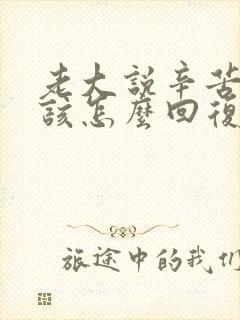 老大說辛苦
該怎麼回復
旅途中的我们